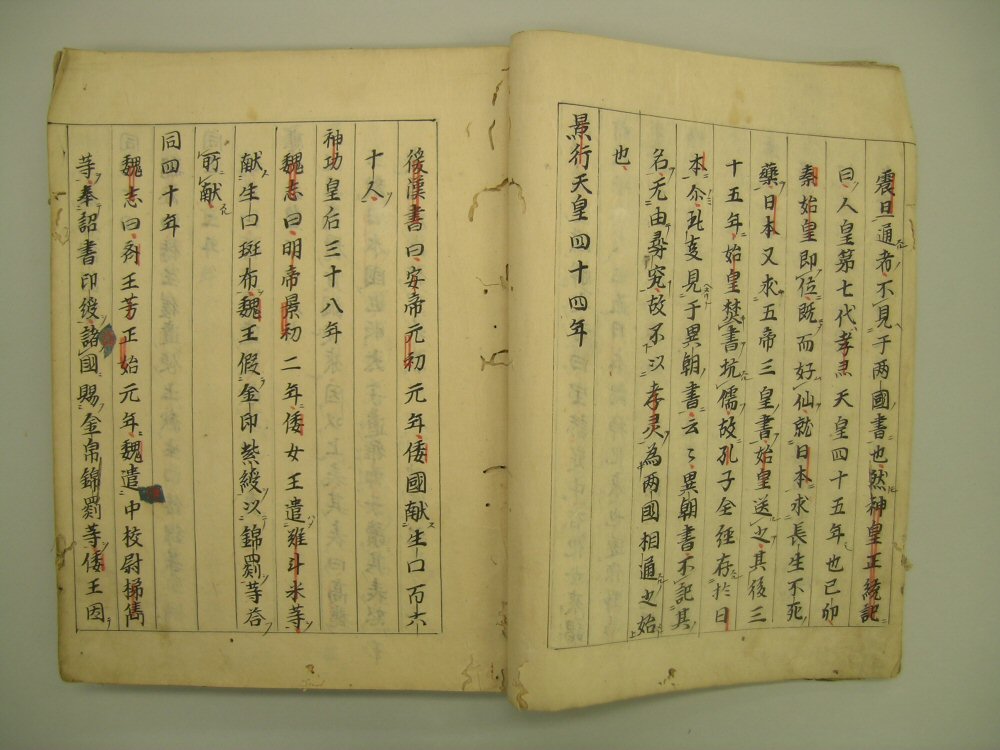 震旦通者不見于两國書也然神皇正統記
曰人皇第七代孝灵天皇四十五年也已卯
秦始皇即位既而好仙就日本求長生不死
藥日本又求五帝三皇書始皇送之其後三
十五年始皇焚書坑儒故孔子全經存於日
本尒此支見于異朝書云々異朝書不記其
名无由尋究故不以孝灵為两國相通之始
也
景行天皇四十四年
後漢書曰安帝元初元年倭國献生口百六
十人
神功皇后三十八年
魏志曰明帝景初二年倭女王遣難斗米等
献生口斑布魏王假金印紫綬以錦罽等荅
所献
同四十年
魏志曰斉王芳正始元年魏遣中校尉梯儁
等奉詔書印綬諸國賜金帛錦罽等倭王因